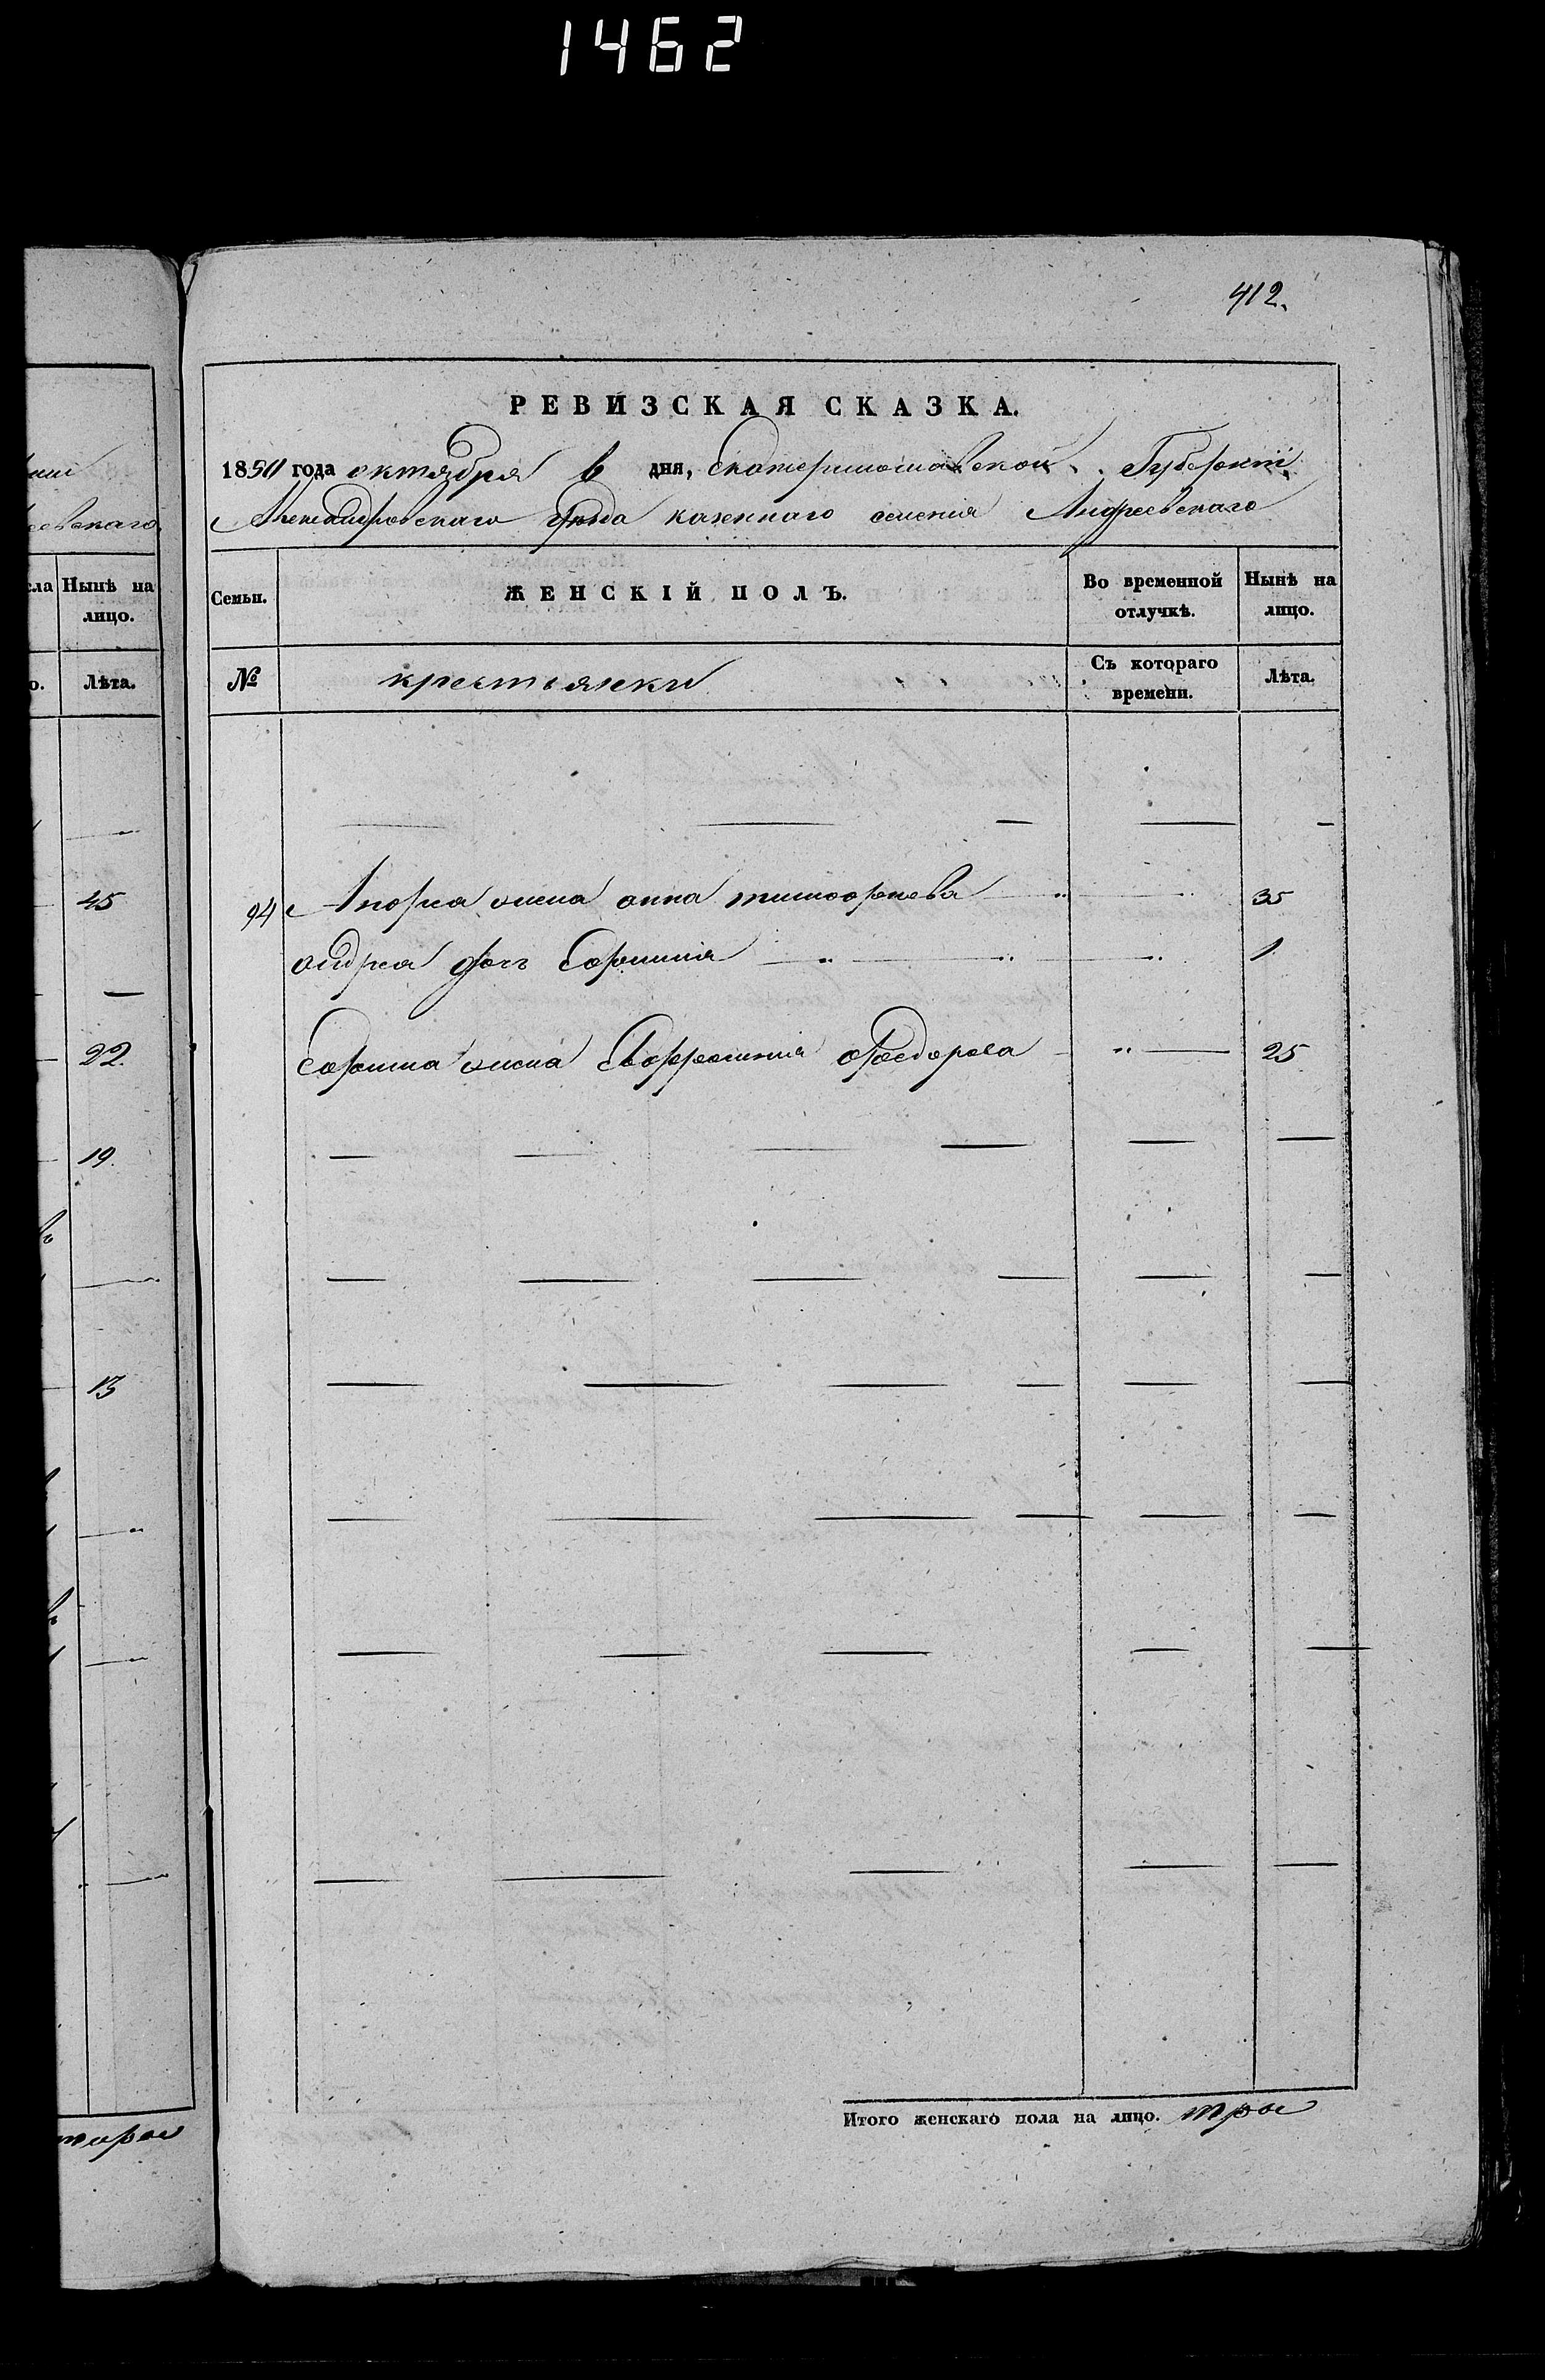 1462
412.
РЕВИЗСКАЯ СКАЗКА.
1850 года октября 6 дня, Екатеринославской Губернии
Александровскаго уезда казеннаго селения Андреевскаго
еевскаго
Семьи.
ЖЕНСКІЙ ПОЛЪ.
Во временной отлучкѣ.
Нынѣ на лицо.
№
крестьянки
Съ котораго времени.
Лѣта.
94 Андрея жена анна тимофеева 35
андрея дочь Ефимия 1
Ефима жена Евфросиния Федорова 25
Итого женскаго пола на лицо. три
сла
Нынѣ на лицо.
о.
Лѣта.
45
22.
19.
13